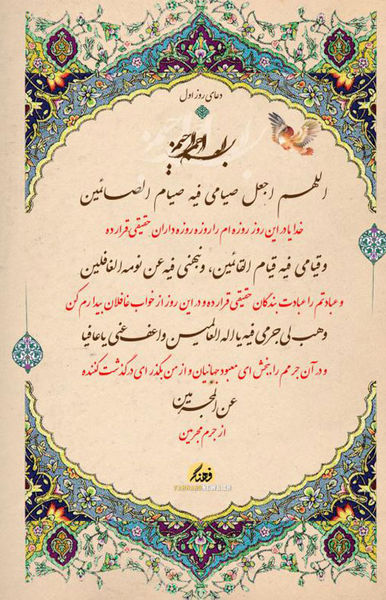 دعای روز اول
بسم الله الرحمن الرحیم
اللهم اجعل صیامی فیه صیام الصائمین
خدایا در این روز روزه ام را روزه روزه داران حقیقی قرار ده
و قیامی فیه قیام القائمین، و نبهنی فیه عن نومه الغافلین
و عبادتم را عبادت بندگان حقیقی قرار ده و در این روز از خواب غافلان بیدارم کن
و هب لی جرمی فیه یا اله العالمین و اعف عنی یا عافیا
و در آن جرمم را ببخش ای معبود جهانیان و از من بگذر ای درگذشت کننده
عن المجرمین
از جرم مجرمین
فرهنگ